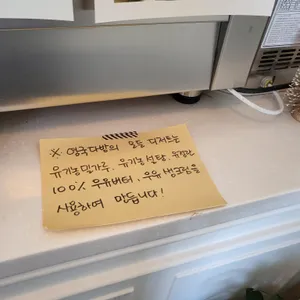 ※ 영국다방의 모든 디저트는
유기농밀가루, 유기농 설탕,
100% 우유버터, 우유 생크림을
사용하여 만듭니다!